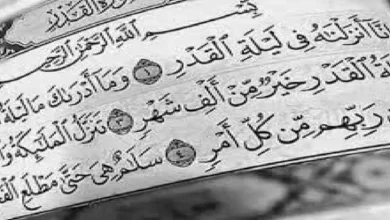 سُورَةُ القَدْرِ
بِسْمِ اللَّهِ الرَّحْمَٰنِ الرَّحِيمِ
أَنزَلْنَٰهُ فِى لَيْلَةِ ٱلْقَدْرِ ١ وَمَآ أَدْرَىٰكَ مَا لَيْلَةُ
ٱلْقَدْرِ خَيْرٌ مِّنْ أَلْفِ شَهْرٍ ٣ تَنَزَّلُ ٱلْمَلَٰٓئِكَةُ
رَبِّهِم مِّن كُلِّ أَمْرٍ ٤ سَلَٰمٌ هِىَ حَتَّىٰ مَطْلَعِ